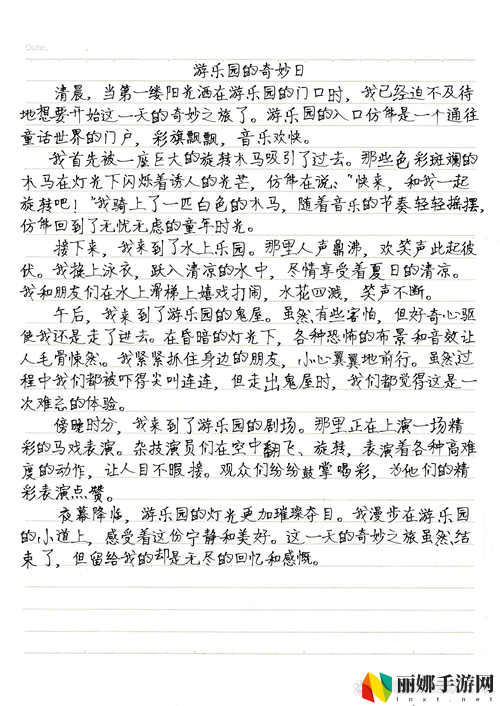 Date.
游乐园的奇妙日
清晨，当第一缕阳光洒在游乐园的门口时，我已经迫不及待
地想要开始这一天的奇妙之旅了。游乐园的入口仿佛是一个通往
童话世界的门户，彩旗飘飘，音乐欢快。
我首先被一座巨大的旋转木马吸引了过去。那些色彩斑斓的
木马在灯光下闪烁着诱人的光芒，仿佛在说：“快来，和我一起
旋转吧！”我骑上了一匹白色的木马，随着音乐的节奏轻轻摇摆，
仿佛回到了无忧无虑的童年时光。
接下来，我来到了水上乐园。那里人声鼎沸，欢笑声此起彼
伏。我换上泳衣，跃入清凉的水中，尽情享受着夏日的清凉。
我和朋友们在水上滑梯上嬉戏打闹，水花四溅，笑声不断。
午后，我来到了游乐园的鬼屋。虽然有些害怕，但好奇心驱
使我还是走了进去。在昏暗的灯光下，各种恐怖的布景和音效让
人毛骨悚然。我紧紧抓住身边的朋友，小心翼翼地前行。虽然过
程中我们都被吓得尖叫连连，但走出鬼屋时，我们都觉得这是一
次难忘的体验。
傍晚时分，我来到了游乐园的剧场。那里正在上演一场精
彩的马戏表演。杂技演员们在空中翻飞、旋转，表演着各种高难
度的动作，让人目不暇接。观众们纷纷鼓掌喝彩，为他们的精
彩表演点赞。
夜幕降临，游乐园的灯光更加璀璨夺目。我漫步在游乐园
的小道上，感受着这份宁静和美好。这一天的奇妙之旅虽然结
束了，但留给我的却是无尽的回忆和感慨。
丽娜手游网
lnxt.net